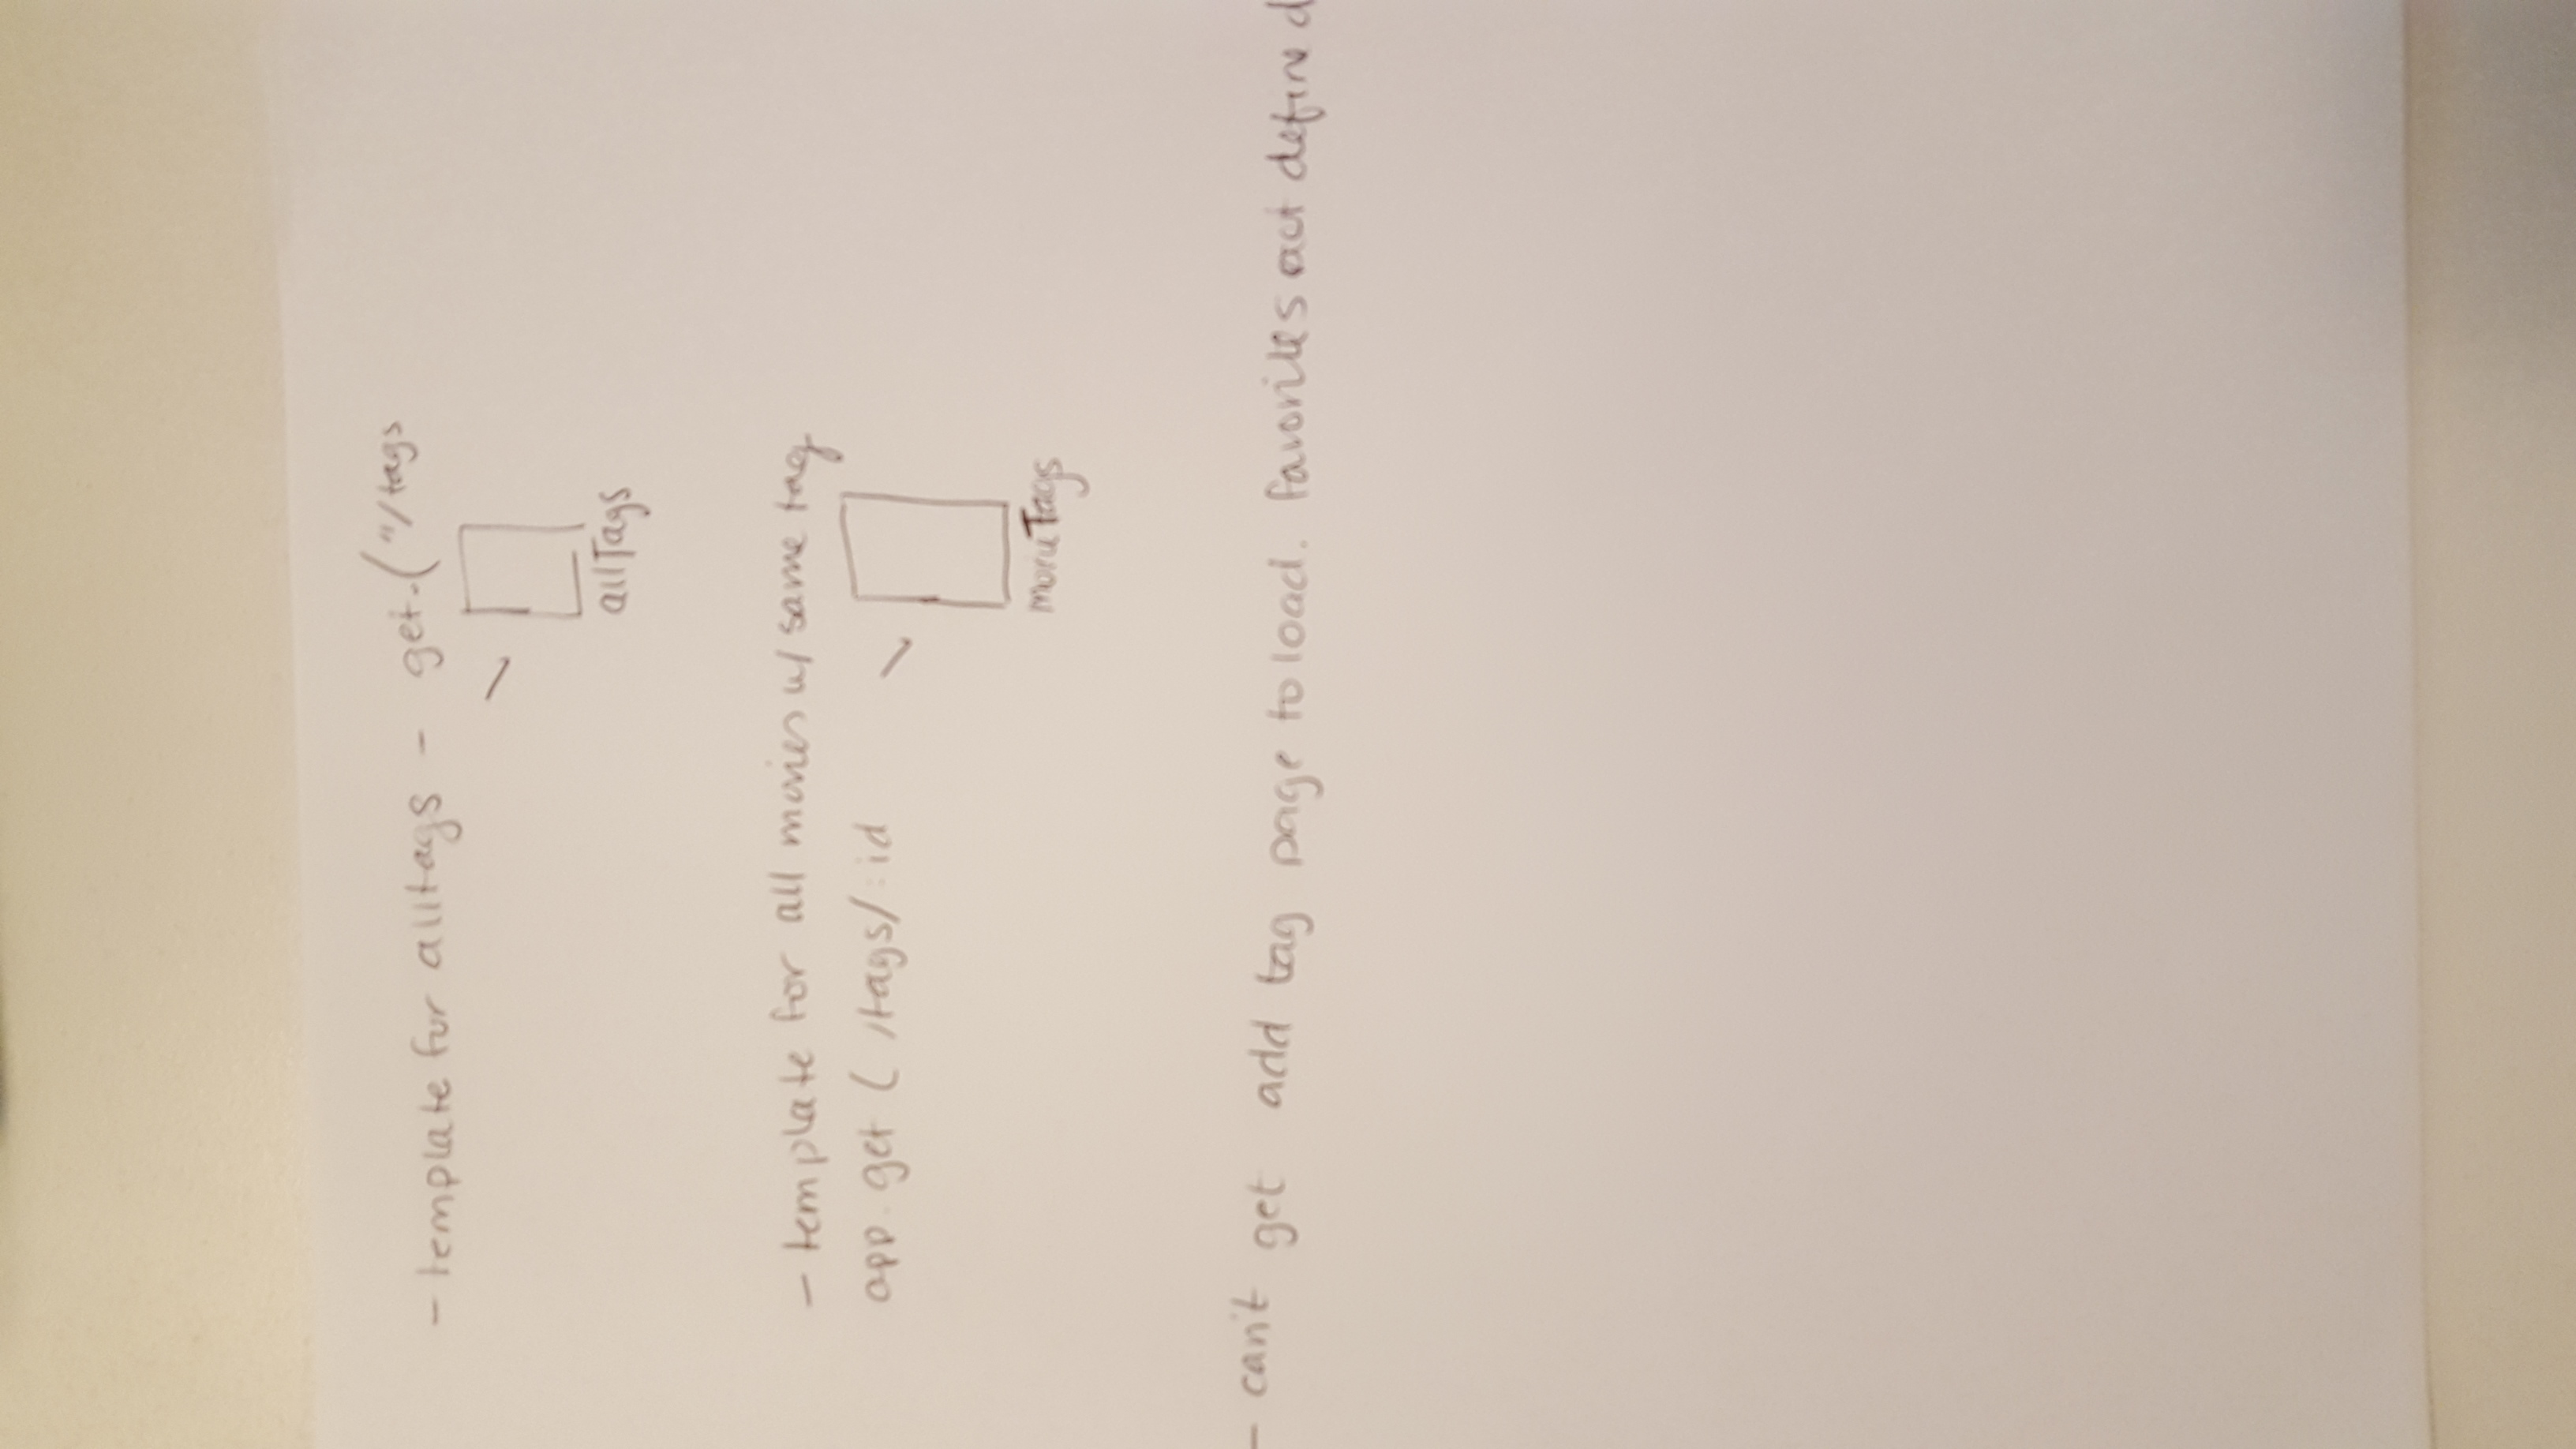 - template for alltags - get.("/tags
allTags
- template for all movies w/ same tag
app.get ( /tags/:id
Tags
- can't get add tag page to load. favorites not defined